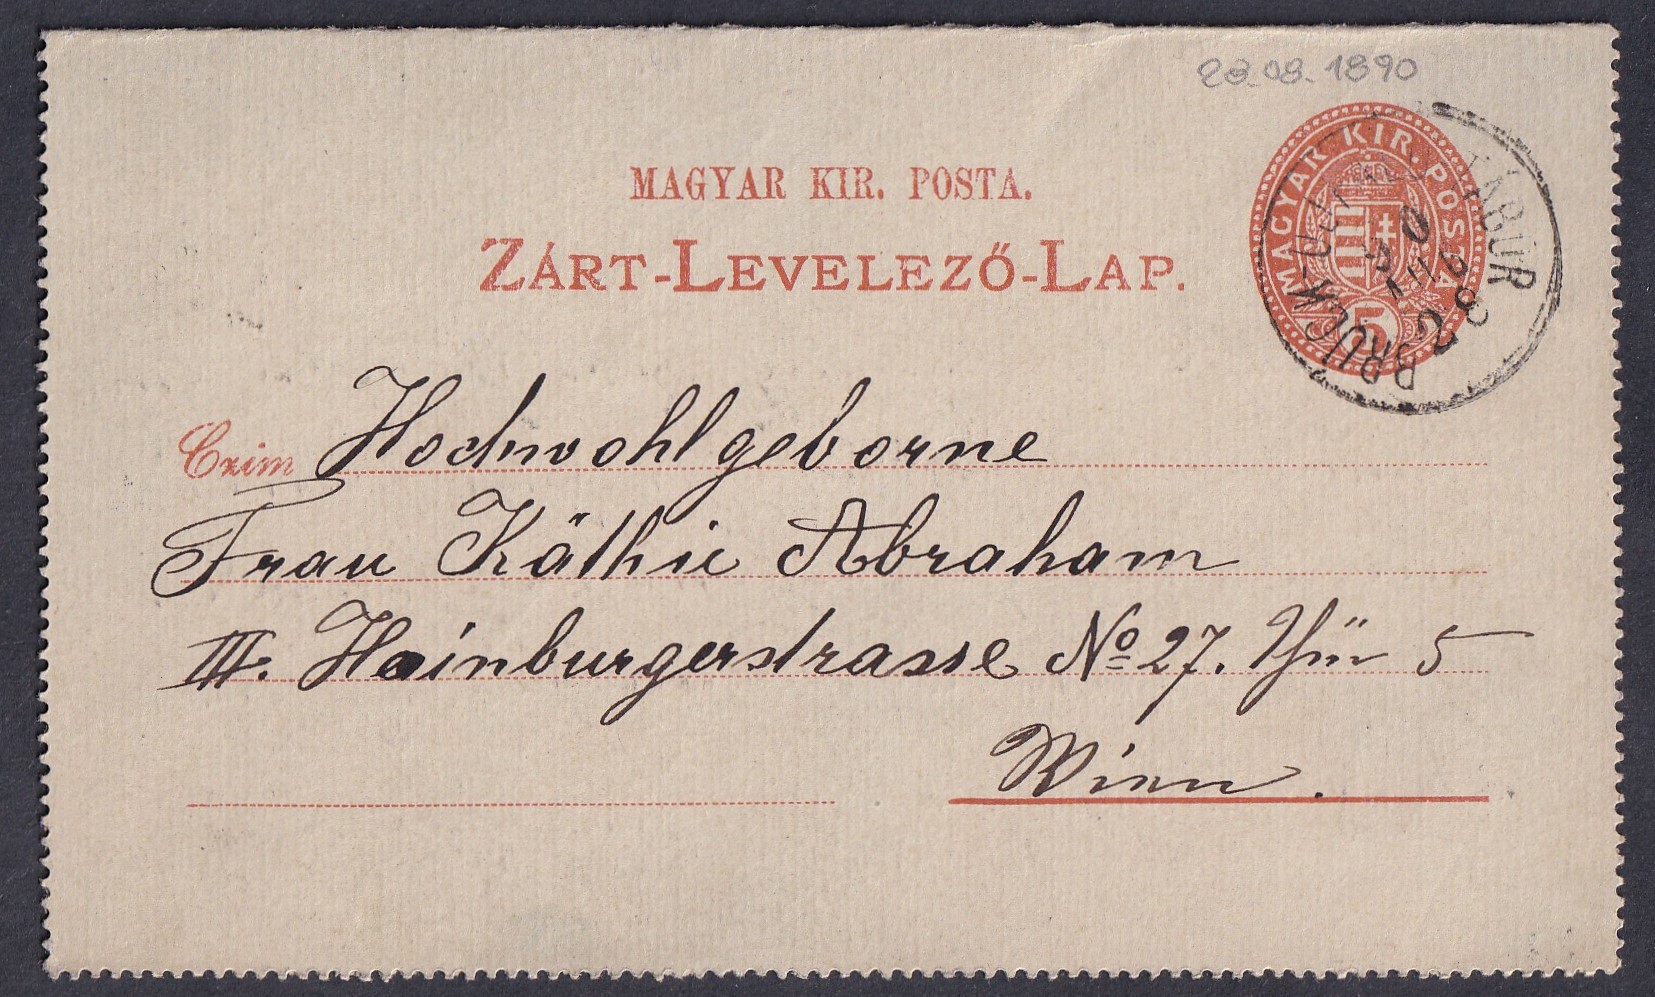 28.08.1890
MAGYAR KIR. POSTA.
ZÁRT-LEVELEZŐ-LAP.
MAGYAR KIR. POSTA
5
BRUCK-UJFALUI TÁBOR
90
VIII
28
Czim Hochwohlgeborne
Frau Käthie Abraham
III. Hainburgerstrasse No 27. Thür 5
Wien.